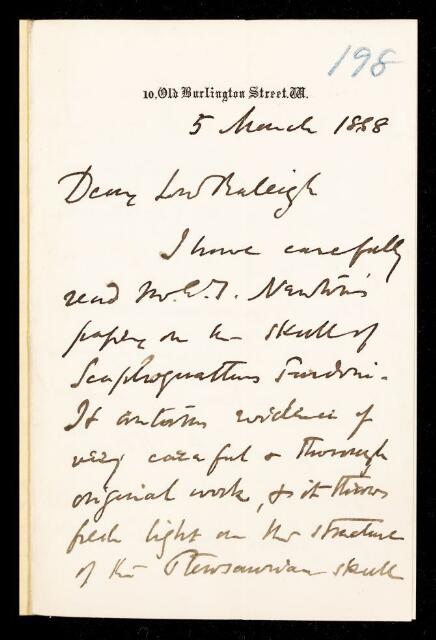 198
10, Old Burlington Street. W.
5 March 1888
Dear Lord Rayleigh
I have carefully
read Mr. E. T. Newton's
paper on the skull of
Scaphognathus Purdoni.
It contains evidence of
very careful & thorough
original work, & it throws
fresh light on the structure
of the Pterosaurian skull